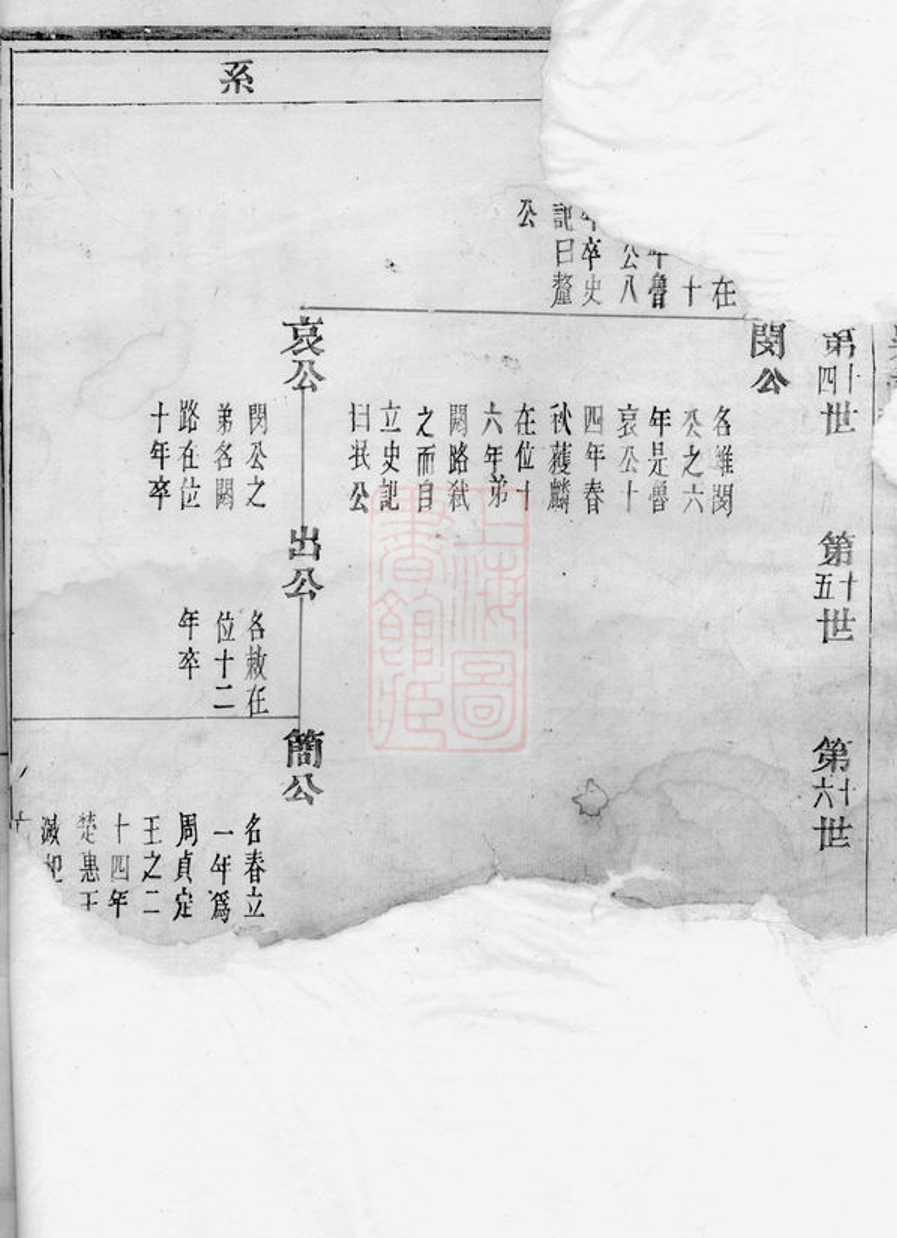 系
第十四世
第十五世
第十六世
在
十
年魯
公八
年卒史
記曰釐
公
閔公
名維閔
公之六
年是魯
哀公十
四年春
秋獲麟
在位十
六年弟
閼路弑
之而自
立史記
曰
公
哀公
閔公之
弟名閼
路在位
十年卒
出公
名敕在
位十二
年卒
簡公
名春立
一年為
周貞定
王之二
十四年
楚惠王
滅杞
上海圖書館藏